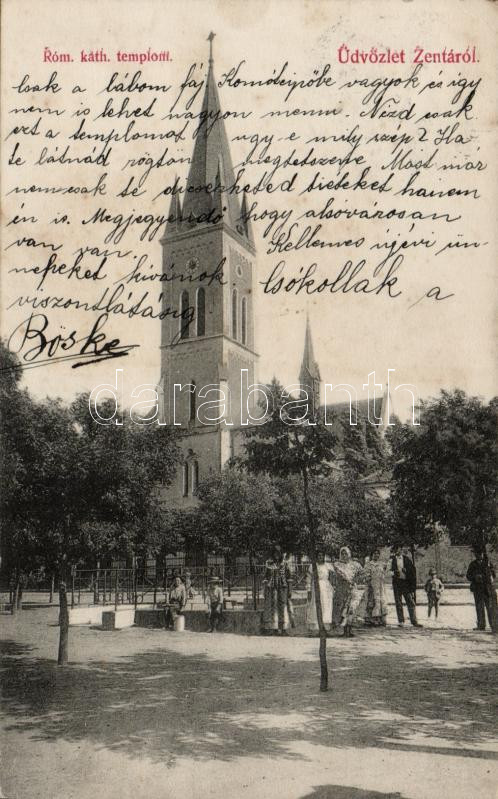 Róm. kath. templom.
Üdvözlet Zentáról.
Csak a lábom fáj Komótzipőbe vagyok és így
nem is lehet nagyon menni. Nézd csak
ezt a templomot ugy-e mily szép? Ha
te látnád rögtön megtetszene Most már
nemcsak te dicsérheted tieteket hanem
én is. Megjegyzendő hogy alsóvárosan
van van. Kellemes újévi ün-
nepeket kivánok Csókollak a
viszontlátásig
Böske
darabanth.com